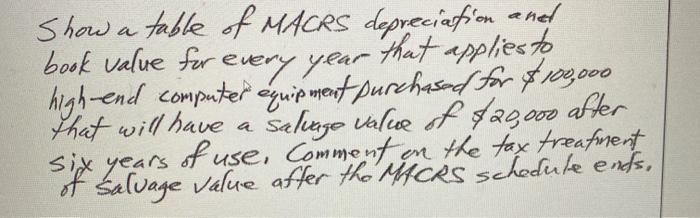 Show a table of MACRS depreciation and
book value for every year that applies to
high-end computer equipment purchased for $100,000
that will have a salvage value of $20,000 after
six years of use. Comment on the tax treatment
of salvage value after the MACRS schedule ends.